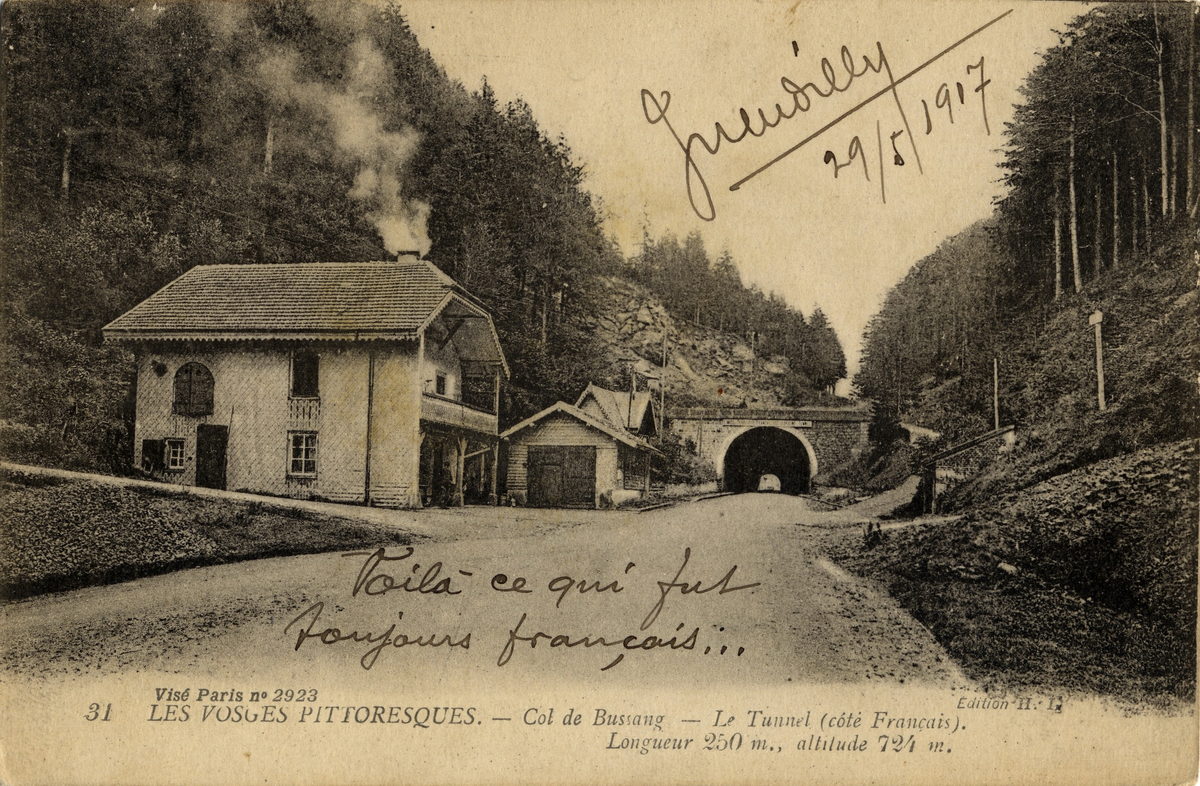 29/5/1917
Voilà ce qui fut
toujours français...
Visé Paris nº 2923
31 LES VOSGES PITTORESQUES. — Col de Bussang — Le Tunnel (côté Français).
Longueur 250 m., altitude 724 m.
Édition H.